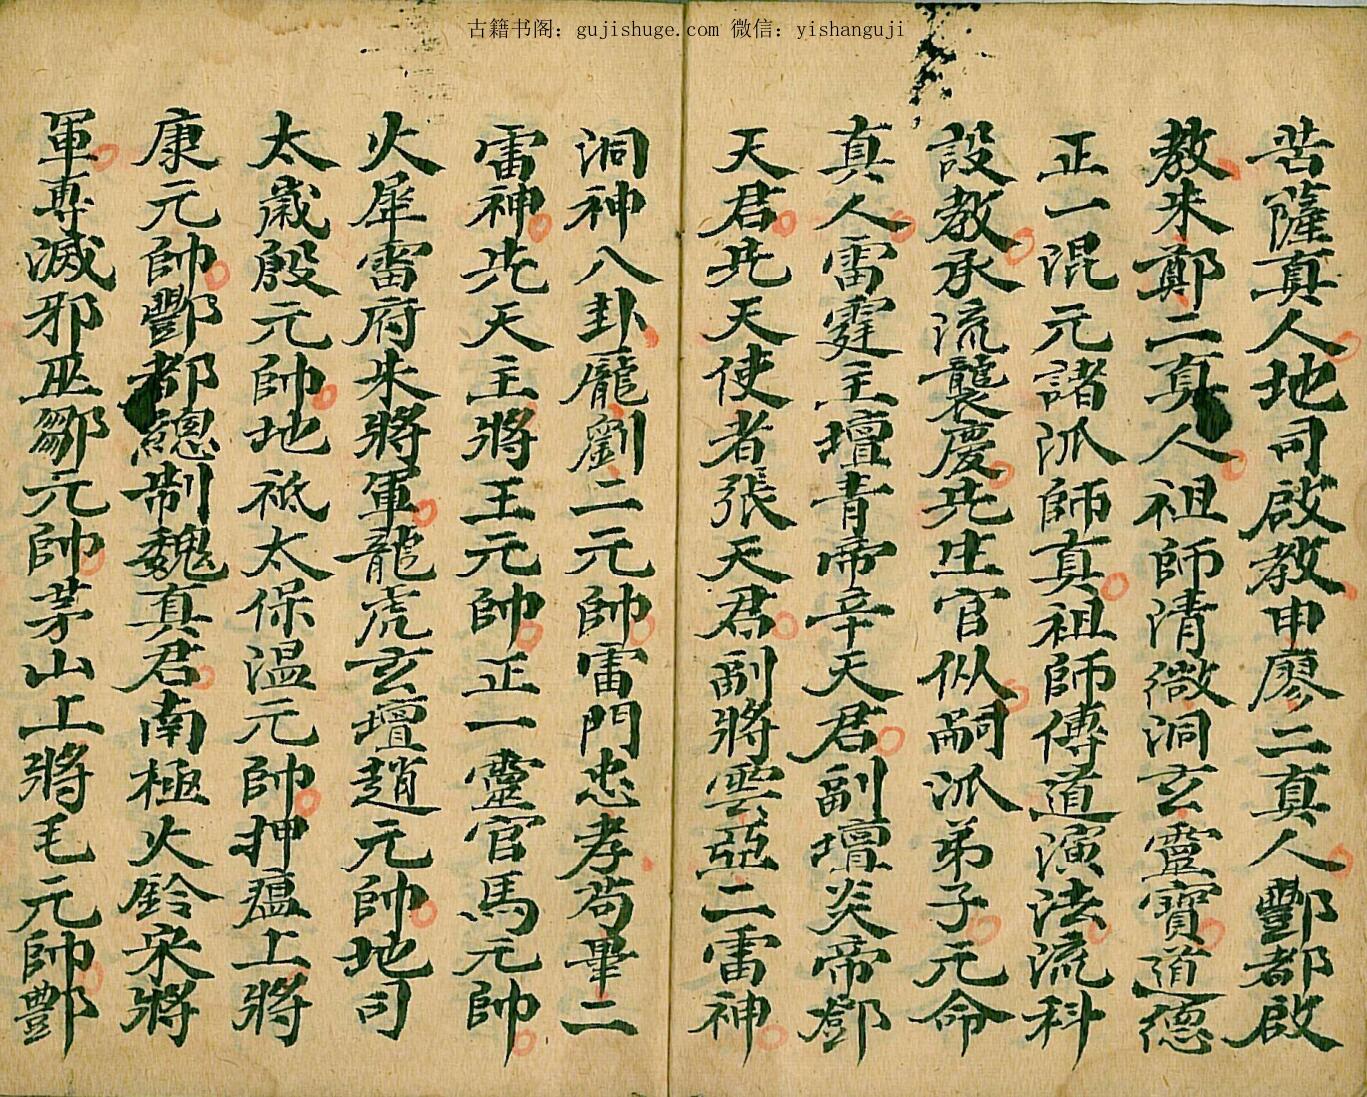 古籍书阁：gujishuge.com 微信：yishanguji
苦薩真人地司啟教申廖二真人酆都啟
教朱鄭二真人祖師清微洞玄靈寶道德
正一混元諸派師真祖師傳道演法流科
設教承流襲慶先生官似嗣派弟子元命
真人雷霆主壇青帝辛天君副壇炎帝鄧
天君先天使者張天君副將雲亞二雷神
洞神八卦龐劉二元帥雷門忠孝苟畢二
雷神先天主將王元帥正一靈官馬元帥
火犀雷府朱將軍龍虎玄壇趙元帥地司
太歲殷元帥地祇太保温元帥押瘟上將
康元帥酆都總制魏真君南極火鈴宋將
軍專滅邪巫鄒元帥茅山上將毛元帥酆